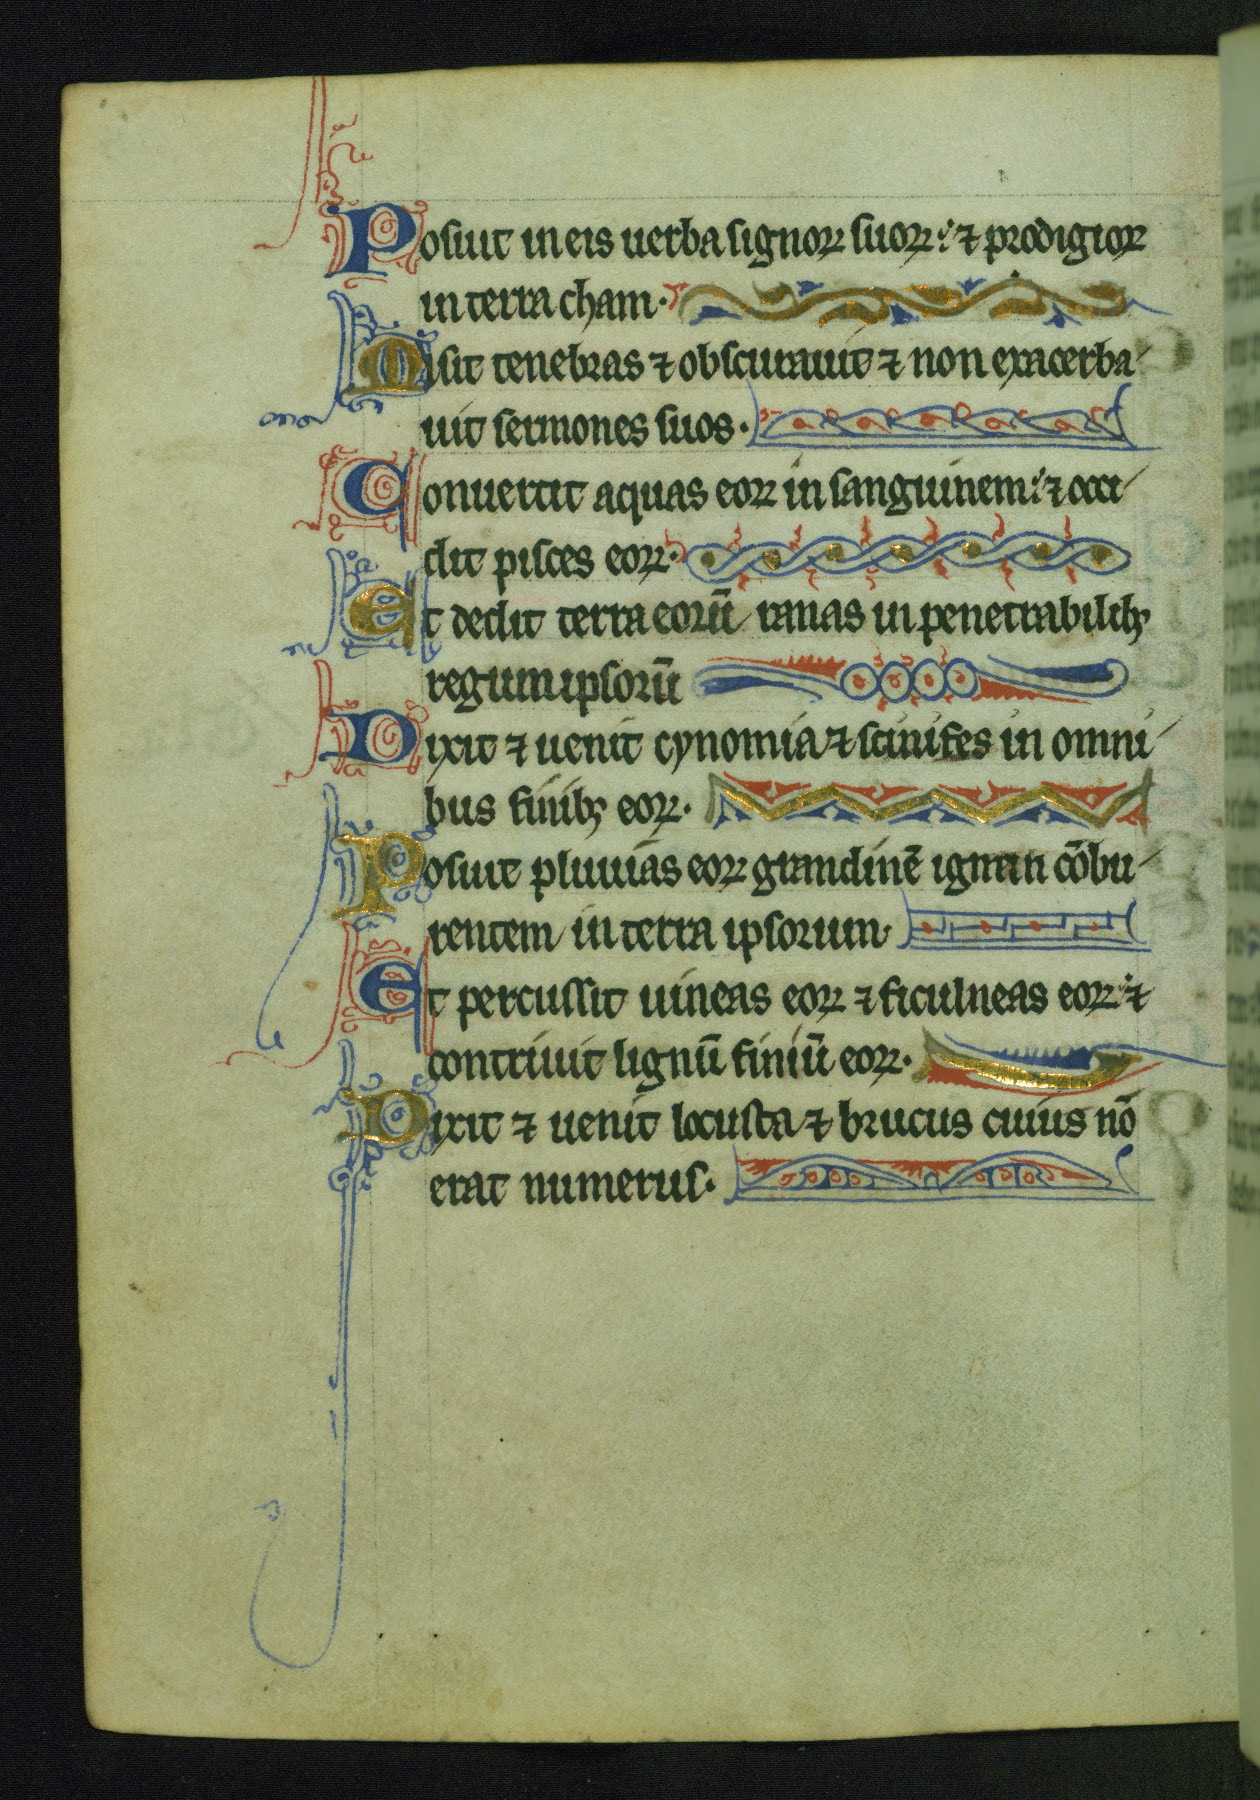 Posuit in eis uerba signoꝝ suoꝝ: ⁊ prodigioꝝ
in terra cham.
Misit tenebras ⁊ obscurauit ⁊ non exacerba
uit sermones suos.
Conuertit aquas eoꝝ in sanguinem: ⁊ occi
dit pisces eoꝝ.
Et dedit terra eorū ranas in penetrabilibꝫ
regum ipsorū
Dixit ⁊ uenit cynomia ⁊ scinifes in omni
bus finibꝫ eoꝝ.
Posuit pluuias eoꝝ grandinē ignem cōbu
rentem in terra ipsorum.
Et percussit uineas eoꝝ ⁊ ficulneas eoꝝ: ⁊
contriuit lignū finiū eoꝝ.
Dixit ⁊ uenit locusta ⁊ brucus cuius nō
erat numerus.